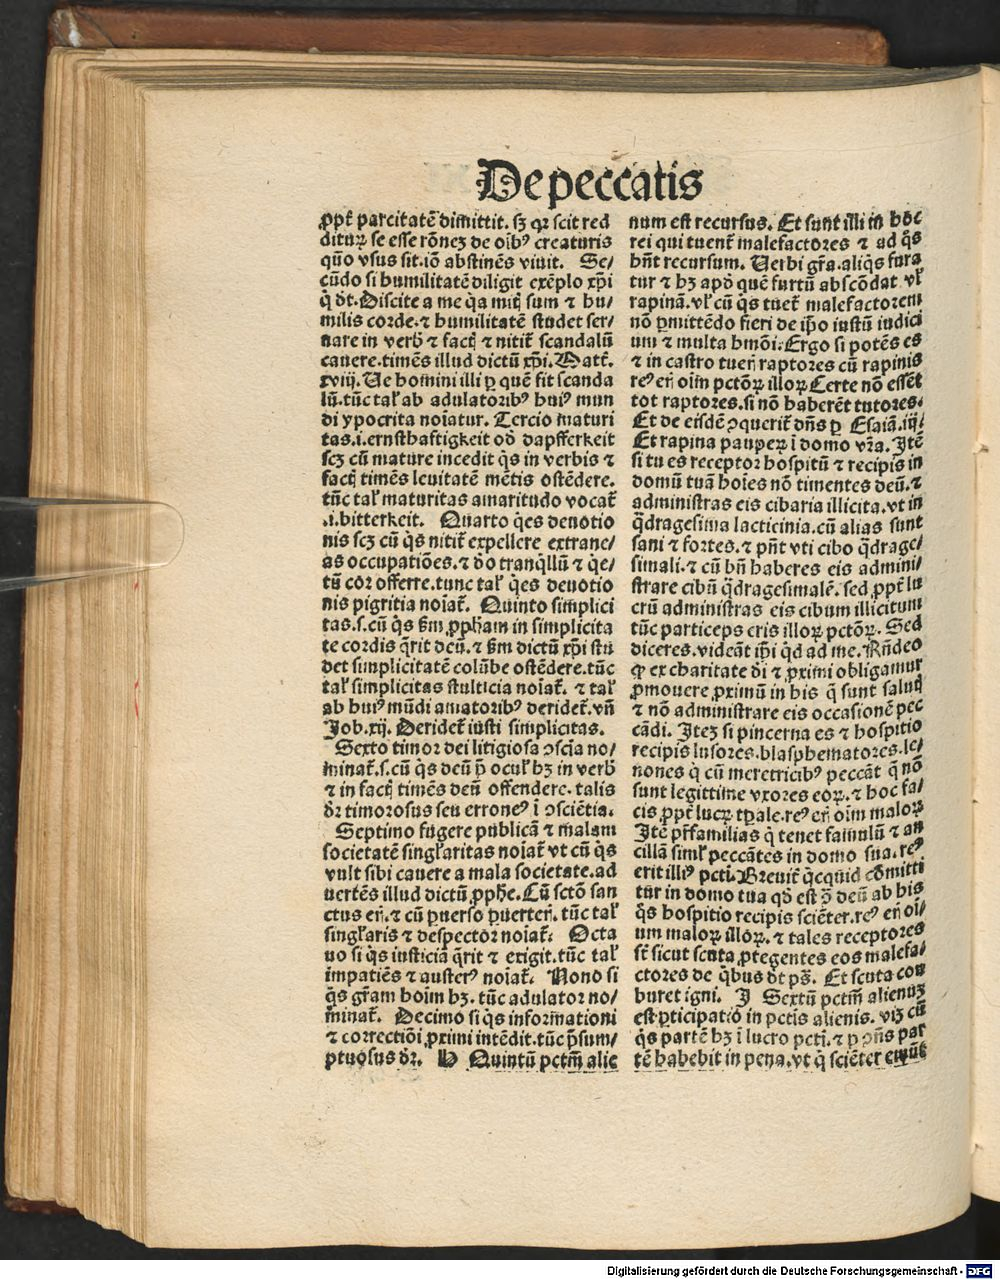 De peccatis
ꝓpt̃ parcitatē dimittit. sꝫ qꝛ scit red
diturꝰ se esse rōnez de oībꝰ creaturis
quō vsus sit. iō abstinēs viuit. Se/
cūdo si humilitatē diligit exēplo xp̄i
q̇ dt̄. Discite a me q̇a mitꝭ sum ⁊ hu/
milis corde. ⁊ humilitatē studet ser/
uare in verbꝭ ⁊ factꝭ ⁊ nitit̃ scandalū
cauere. timēs illud dictū xp̄i. Matt̃.
xviij. Ue homini illi ꝑ quē fit scanda
lū. tūc tal̃ ab adulatoribꝰ huiꝰ mun
di ypocrita noīatur. Tercio maturi
tas .i. ernsthaftigkeit od̃ dapfferkeit
scꝫ cū mature incedit q̇s in verbis ⁊
factꝭ timēs leuitatē mētis ostēdere.
tūc tal̃ maturitas amaritudo vocat̃
.i. bitterkeit. Quarto q̇es deuotio
nis scꝫ cū q̇s nitit̃ expellere extrane/
as occupatiōes. ⁊ do tranq̇llū ⁊ q̇e/
tū cor offerre. tunc tal̃ q̇es deuotio
nis pigritia noīat̃. Quinto simplici
tas .s. cū q̇s ẜm ꝓph̃am in simplicita
te cordis q̃rit deū. ⁊ ẜm dictū xp̄i stu
det simplicitatē colūbe ostēdere. tūc
tal̃ simplicitas stulticia noīat̃. ⁊ tal̃
ab huiꝰ mūdi amatoribꝰ deridet̃. vñ
Job .xij. Deridet̃ iusti simplicitas.
Sexto timor dei litigiosa ꝯscīa no/
minat̃ .s. cū q̇s deū p̄ ocul̃ hꝫ in verbꝭ
⁊ in factꝭ timēs deū offendere. talis
dr̄ timorosus seu erroneꝰ ī ꝯsciētia.
Septimo fugere publicā ⁊ malam
societatē singl̃aritas noīat̃ vt cū q̇s
vult sibi cauere a mala societate. ad
uertēs illud dictū ꝓphe. Cū sctō san
ctus er̄. ⁊ cū ꝑuerso ꝑuerter̄. tūc tal̃
singl̃aris ⁊ despector noīat̃. Octa
uo si q̇s iusticiā q̃rit ⁊ exigit. tūc tal̃
impatiēs ⁊ austerꝰ noīat̃. Nono si
q̇s gr̃am hoīm hꝫ. tūc adulator no/
minat̃. Decimo si q̇s informationi
⁊ correctiōi ꝓximi intēdit. tūc p̄sum/
ptuosus dr̄. H Quintū pctm̄ alie
num est recursus. Et sunt illi in hoc
rei qui tuent̃ malefactores ⁊ ad q̇s
hn̄t recursum. Uerbi gr̃a. aliq̇s fura
tur ⁊ hꝫ apd̃ quē furtū abscōdat vl̃
rapinā. vl̃ cū q̇s tuet̃ malefactorem
nō ꝑmittēdo fieri de ip̄o iustū iudici
um ⁊ multa hmōi. Ergo si potēs es
⁊ in castro tuer̄ raptores cū rapinis
reꝰ er̄ oīm pctōꝝ illoꝝ Certe nō essēt
tot raptores. si nō haberēt tutores.
Et de eisdē ꝯquerit̃ dn̄s ꝑ Esaiā .iij/
Et rapina pauperꝝ ī domo vr̃a. Itē
si tu es receptor hospitū ⁊ recipis in
domū tuā hoīes nō timentes deū. ⁊
administras eis cibaria illicita. vt in
q̃dragesima lacticinia. cū alias sunt
sani ⁊ fortes. ⁊ pn̄t vti cibo q̃drage/
simali. ⁊ cū bn̄ haberes eis admini/
strare cibū q̃dragesimalē. sed ꝓpt̃ lu
crū administras eis cibum illicitum
tūc particeps eris illoꝝ pctōꝝ. Sed
diceres. videāt ip̄i q̇d ad me. Rn̄deo
ꝙ ex charitate di ⁊ ꝓximi obligamur
ꝓmouere ꝓximū in his q̄ sunt salutꝭ
⁊ nō administrare eis occasionē pec
cādi. Itez si pincerna es ⁊ hospitio
recipis lusores. blasphematores. le/
nones q̇ cū meretricibꝰ peccāt q̄ nō
sunt legittime vxores eoꝝ. ⁊ hoc fa/
cis ꝓpt̃ lucrꝝ tꝑale. reꝰ er̄ oīm maloꝝ
Itē pr̄familias q̇ tenet famulū ⁊ an
cillā siml̃ peccātes in domo sua. reꝰ
erit illiꝰ pcti. Breuit̃ q̇cquid cōmitti
tur in domo tua qd̃ est ꝯ̄ deū ab his
q̇s hospitio recipis sciēter. reꝰ er̄ oī/
um maloꝝ illoꝝ. ⁊ tales receptores
st̄ sicut scuta ꝓtegentes eos malefa/
ctores de q̇bus dt̄ ps̄. Et scuta com
buret igni. J Sextū pctm̄ alienuꝫ
est ꝑticipatio in pctis alienis. viꝫ cū
q̇s partē hꝫ ī lucro pcti. ⁊ ꝑ ꝯn̄s par
tē habebit in pena. vt q̇ sciēter
Digitalisierung gefördert durch die Deutsche Forschungsgemeinschaft - DFG